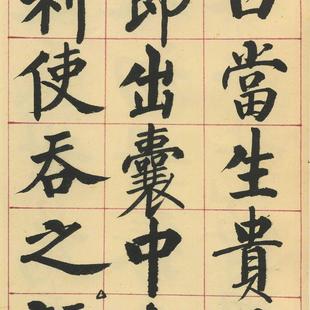 當生貴
即出囊中
使吞之